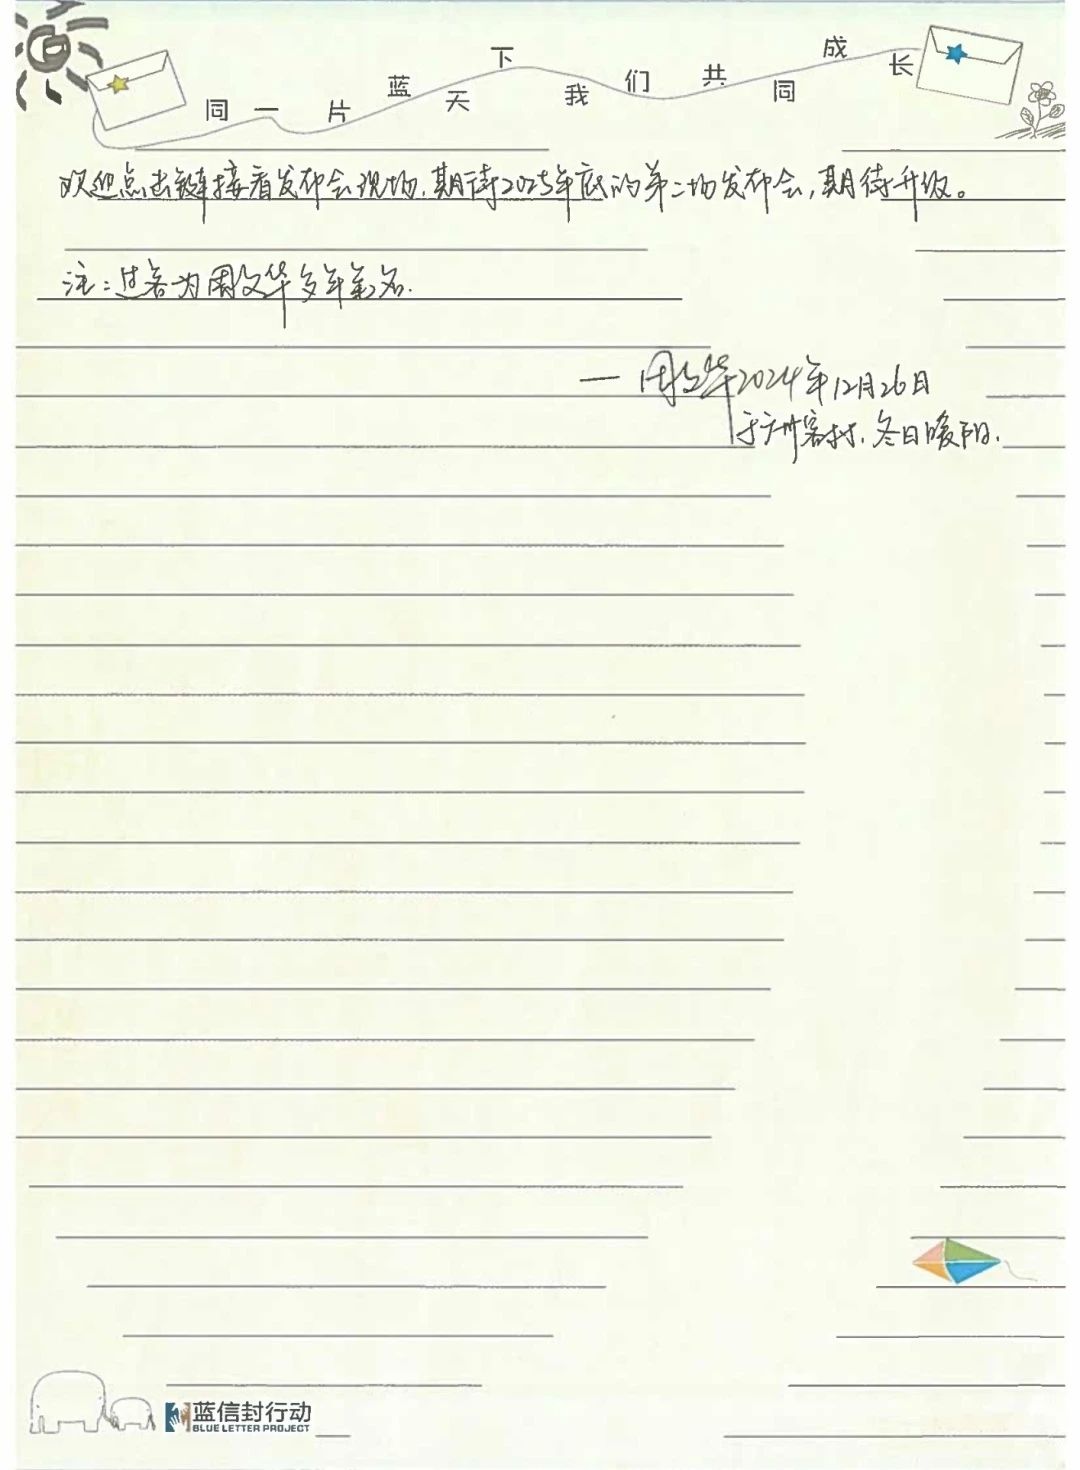 同一片蓝天下我们共同成长
欢迎点击链接看发布会现场,期待2025年底的第二场发布会,期待升级。
注:过客为周文华多年笔名.
— 周文华2024年12月26日
于广州客村.冬日暖阳.
蓝信封行动
BLUE LETTER PROJECT